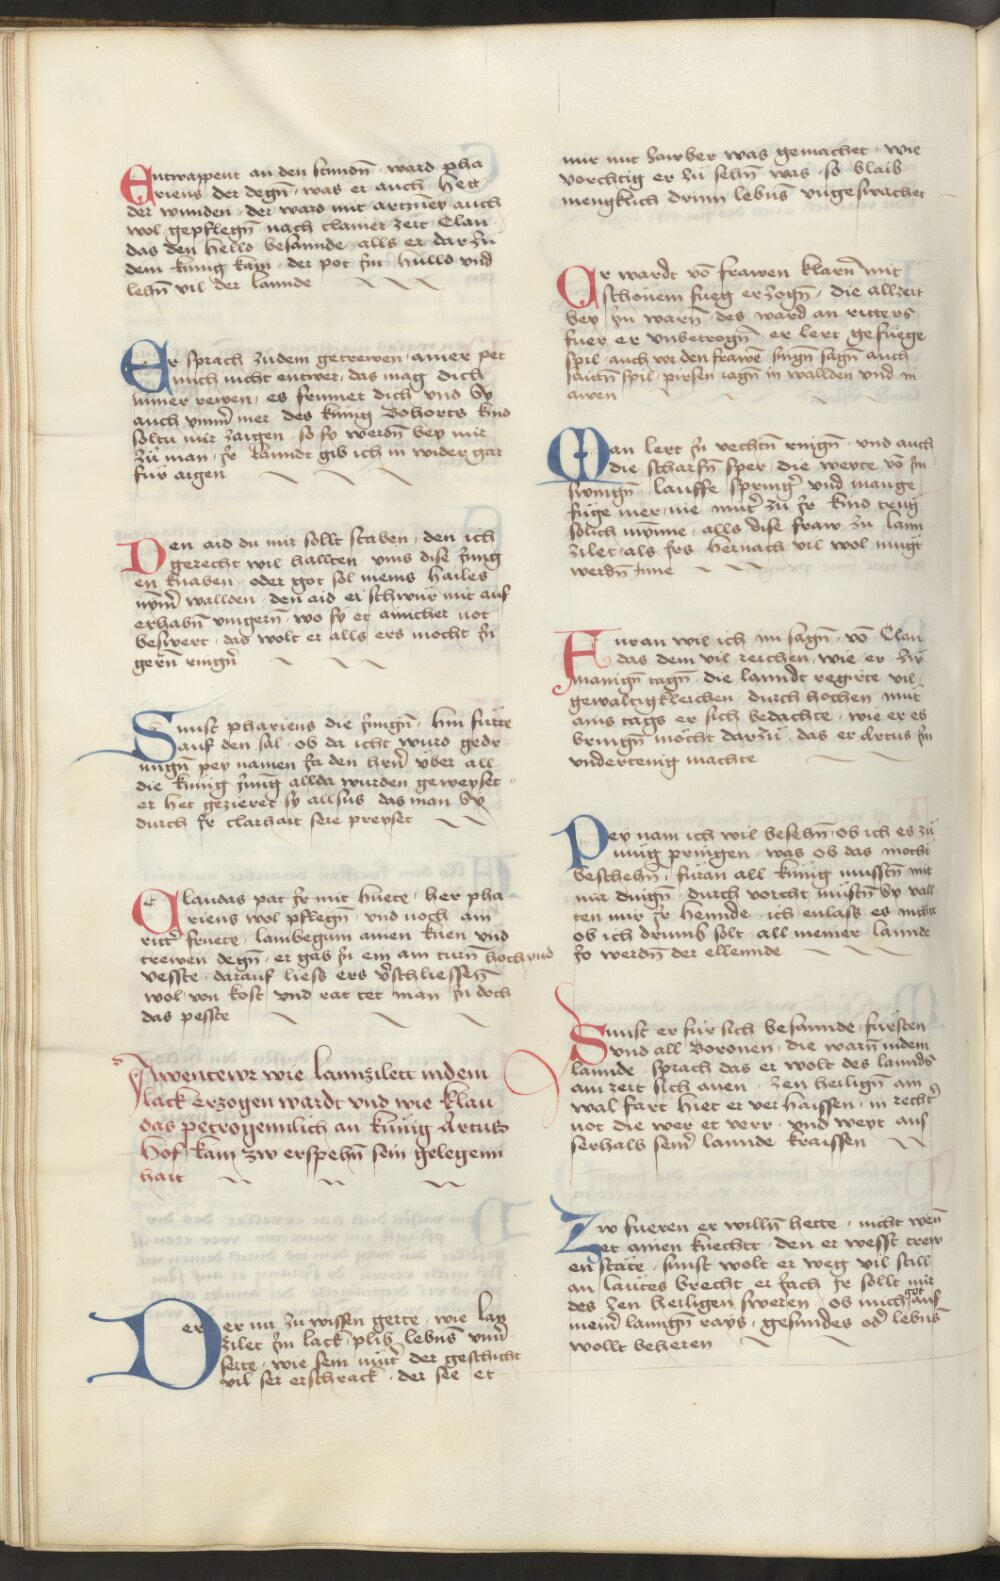 Entwappent an den stundn̄ · ward pha
riens der degn̄ · was er auch hett
der wunden · der ward mit artzney auch
wol gepflegn̄ · nach clainer zeit Clau
das den helld besannde · alls er dar zu
dem kunig kam · der pot im hulld vnd
lehn̄ vil der lannde
Er sprach zudem getrewen · ainer pet
mich nicht entwer · das mag dich
nimer rewen · es frumet dich vnd sy
auch ymm̄er mer · des kunig Bohorts kind
soltu mir zaigen · so sy werdn̄ bey mir
zu man · ir lanndt gib ich in wider gar
für aigen
Den aid du mir sollt staben · den ich
gerecht wil hallten · vms dise Jung
en knaben · oder got sol meins hailes
nym̄er wallden · den aid er schwur mit auf
erhabn̄ vingern̄ · wo sy et ainicher not
beswert · das wolt er alls ers mocht in
gern̄ ringn̄
Sunst phariens die Jungn̄ · hin fuite
auf den sal · ob da icht wurd gedr
ungn̄ pey namen Ja den hrn̄ vber all
die kunig Jung allda wurden geweyset
er het gezieret sy allsus das man sy
durch ir clarhait sere preyset
Claudas pat ir mit huete · her pha
riens wol pflegn̄ · vnd noch ain
ritt̄ fruete · lambegum ainen kuen vnd
trewen degn̄ · er gab in ein ain turn̄ hoch vnd
vesste · darauf liess ers v̄schliessen̄
wol von kost vnd rat tet man in doch
das pesste
Awentewr wie lannzilett indem
lack erzogen wardt vnd wie klau
das petrogennlich an kunig Artus
hof kam zw erspehn̄ sein gelegenn
hait
Der
Der nu zu wissen gerte · wie lan
zilet im lack plib lebns vnu̅
serte · wie sein mut̄ der geschicht
vil ser erschrack · der see et
nur mit zawber was gemachet · wie
vorchtig er zu sehn̄ was · so blaib
mengklich drinn lebns vngeswachet
Er wardt vō frawen klarn̄ mit
schonem fueg erzogn̄ · die allzeit
bey im warn̄ · des ward an ritters
fuer er vnbetrogn̄ · er lert gefuege
spil · auch vor den frawē singn̄ sagn̄ auch
saitn̄ spil · pirsen iagn̄ in wallden vnd in
awen
Man lert in vechtn̄ ringn̄ · vnd auch
die scharfn̄ sper · die weyte vō im
swingn̄ · lauffe spring̅ vnd mange
fuge mer · nie mut̄ zu ir kind trug
solich mynne · alls dise fraw zu lann
zilet · als irs hernach vil wol mugt
werdn̄ Inne
Furan wil ich nu sagn̄ · vō Clau
das dem vil reichen · wie er zw
manign̄ tagn̄ · die lanndt regirte vil
gewaltigkleichen · durch hochen mut
ains tags er sich bedachte · wie er es
bringn̄ mocht darzu · das er Artus im
vndertenig machte
Pey nam ich wil besehn̄ · ob ich es zu
mug pringen · was ob das mocht
beschehn̄ · furan all kunig mussten mit
mir dingn̄ · durch vorcht mustn̄ sy vall
ten mir ir hennde · ich enlass es nicht
ob ich drumb solt all meiner lannde
Jo werdn̄ der ellennde
Sunst er fur sich besannde · fursten
vnd all Boronen · die warn̄ indem
lannde · sprach das er wolt des lannds
ain zeit sich anen · zen heilign̄ ain
wal fart hiet er verhaissen · in recht̄
not die wer et verr · vnd weyt aus
serhalb sein̄ lannde kraissen
Zw fueren er willn̄ hette · nicht wen̄
et ainen knechtt · den er wesst trew
en state · sunst wolt er weg vil still
an lautes brecht · er sach ir sollt mir
des zen heiligen sweren · ob mich got auf
mein̄ lanngn̄ rays · gesundes od̄ lebns
wollt beheren